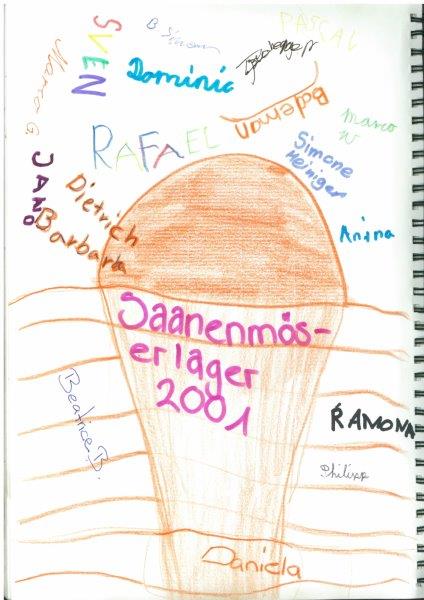 PASCAL
SVEN
B. Simon
Dominic
Marco G.
Bodeman
Marco
W
RAFAEL
Simone
Meiniger
JANO
Dietrich
Barbara
Anina
Saanenmös-
erlager
2001
Beatrice B.
RAMONA
Philipp
Daniela